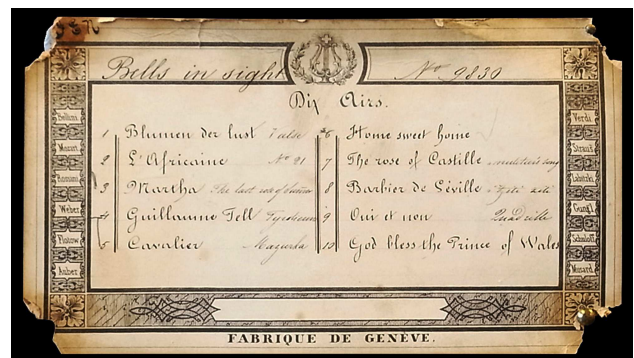 Bells in sight No 9830
Dix Airs.
1 Blumen der lust Valse
2 L'Africaine No 21
3 Martha The last rose of
4 Guillaume Tell Tyrolienne
5 Cavalier Mazurka
6 Home sweet home
7 The rose of Castille muleteer's song
8 Barbier de Séville Zitti zitti
9 Oui et non Quadrille
10 God bless the Prince of Wales
Bellini
Mozart
Rossini
Weber
Flotow
Auber
Verdi
Strauß
Labitzki
Gungl
Schulhoff
Musard
FABRIQUE DE GENÈVE.